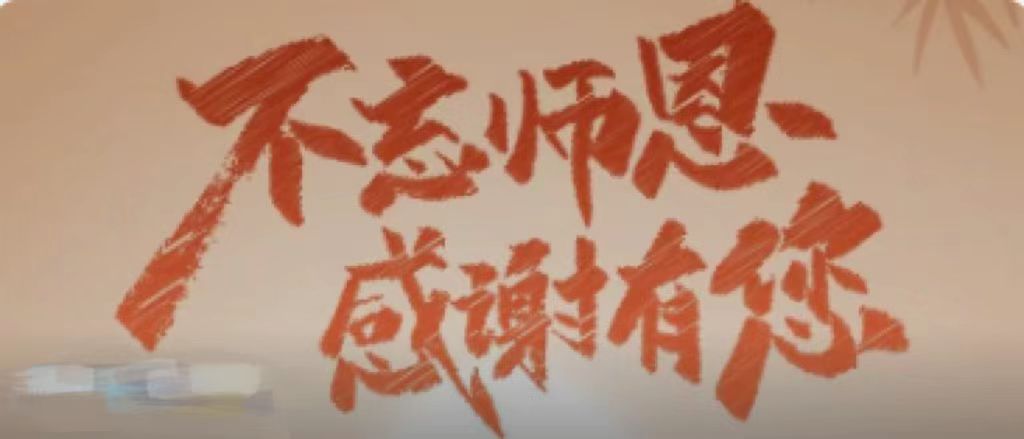 不忘师恩
感谢有您